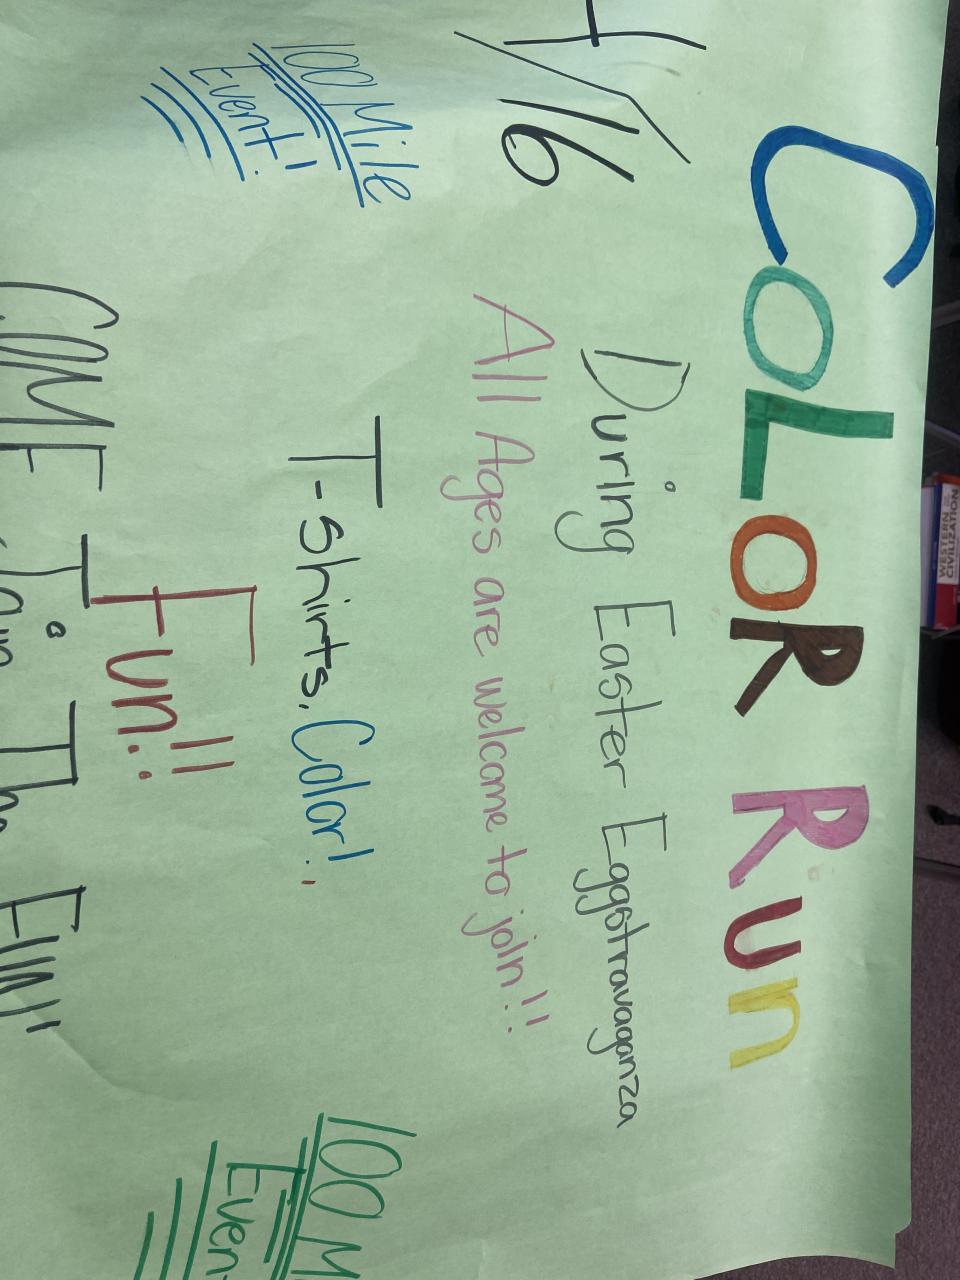 COLOR Run
4/16
During Easter Eggstravaganza
All Ages are welcome to join!!
100 Mile
Event!
T-Shirts, Color!
100 M
Even
Fun!!
COME Join The FUN!
WESTERN
CIVILIZATION